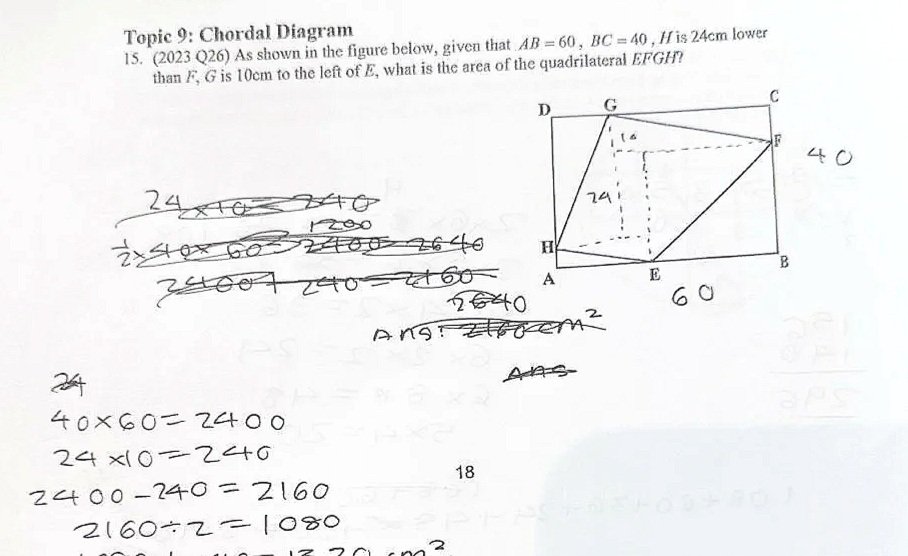 Topic 9: Chordal Diagram
15. (2023 Q26) As shown in the figure below, given that AB = 60, BC = 40, H is 24cm lower
than F, G is 10cm to the left of E, what is the area of the quadrilateral EFGH?
D G C
10
F
40
24
H
A E B
60
24 × 10 = 240
1200
1/2 × 40 × 60 = 2400 = 2640
2400 + 240 = 2160
2640
Ans: 2160cm²
Ans
24
40×60=2400
24×10=240
18
2400-240=2160
2160÷2=1080